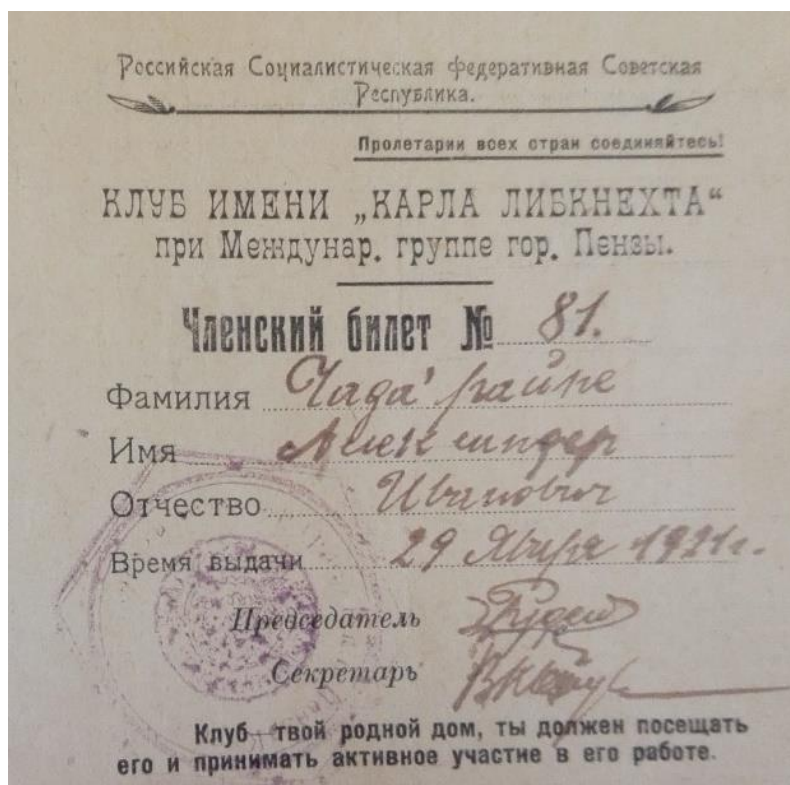 Российская Социалистическая Федеративная Советская
Республика.
Пролетарии всех стран соединяйтесь!
КЛУБ ИМЕНИ „КАРЛА ЛИБКНЕХТА“
при Междунар. группе гор. Пензы.
Членский билет № 81.
Фамилия
Имя Александер
Отчество Иванович
Время выдачи 29 Января 1921 г.
Председатель
Секретарь
Клуб—твой родной дом, ты должен посещать
его и принимать активное участие в его работе.